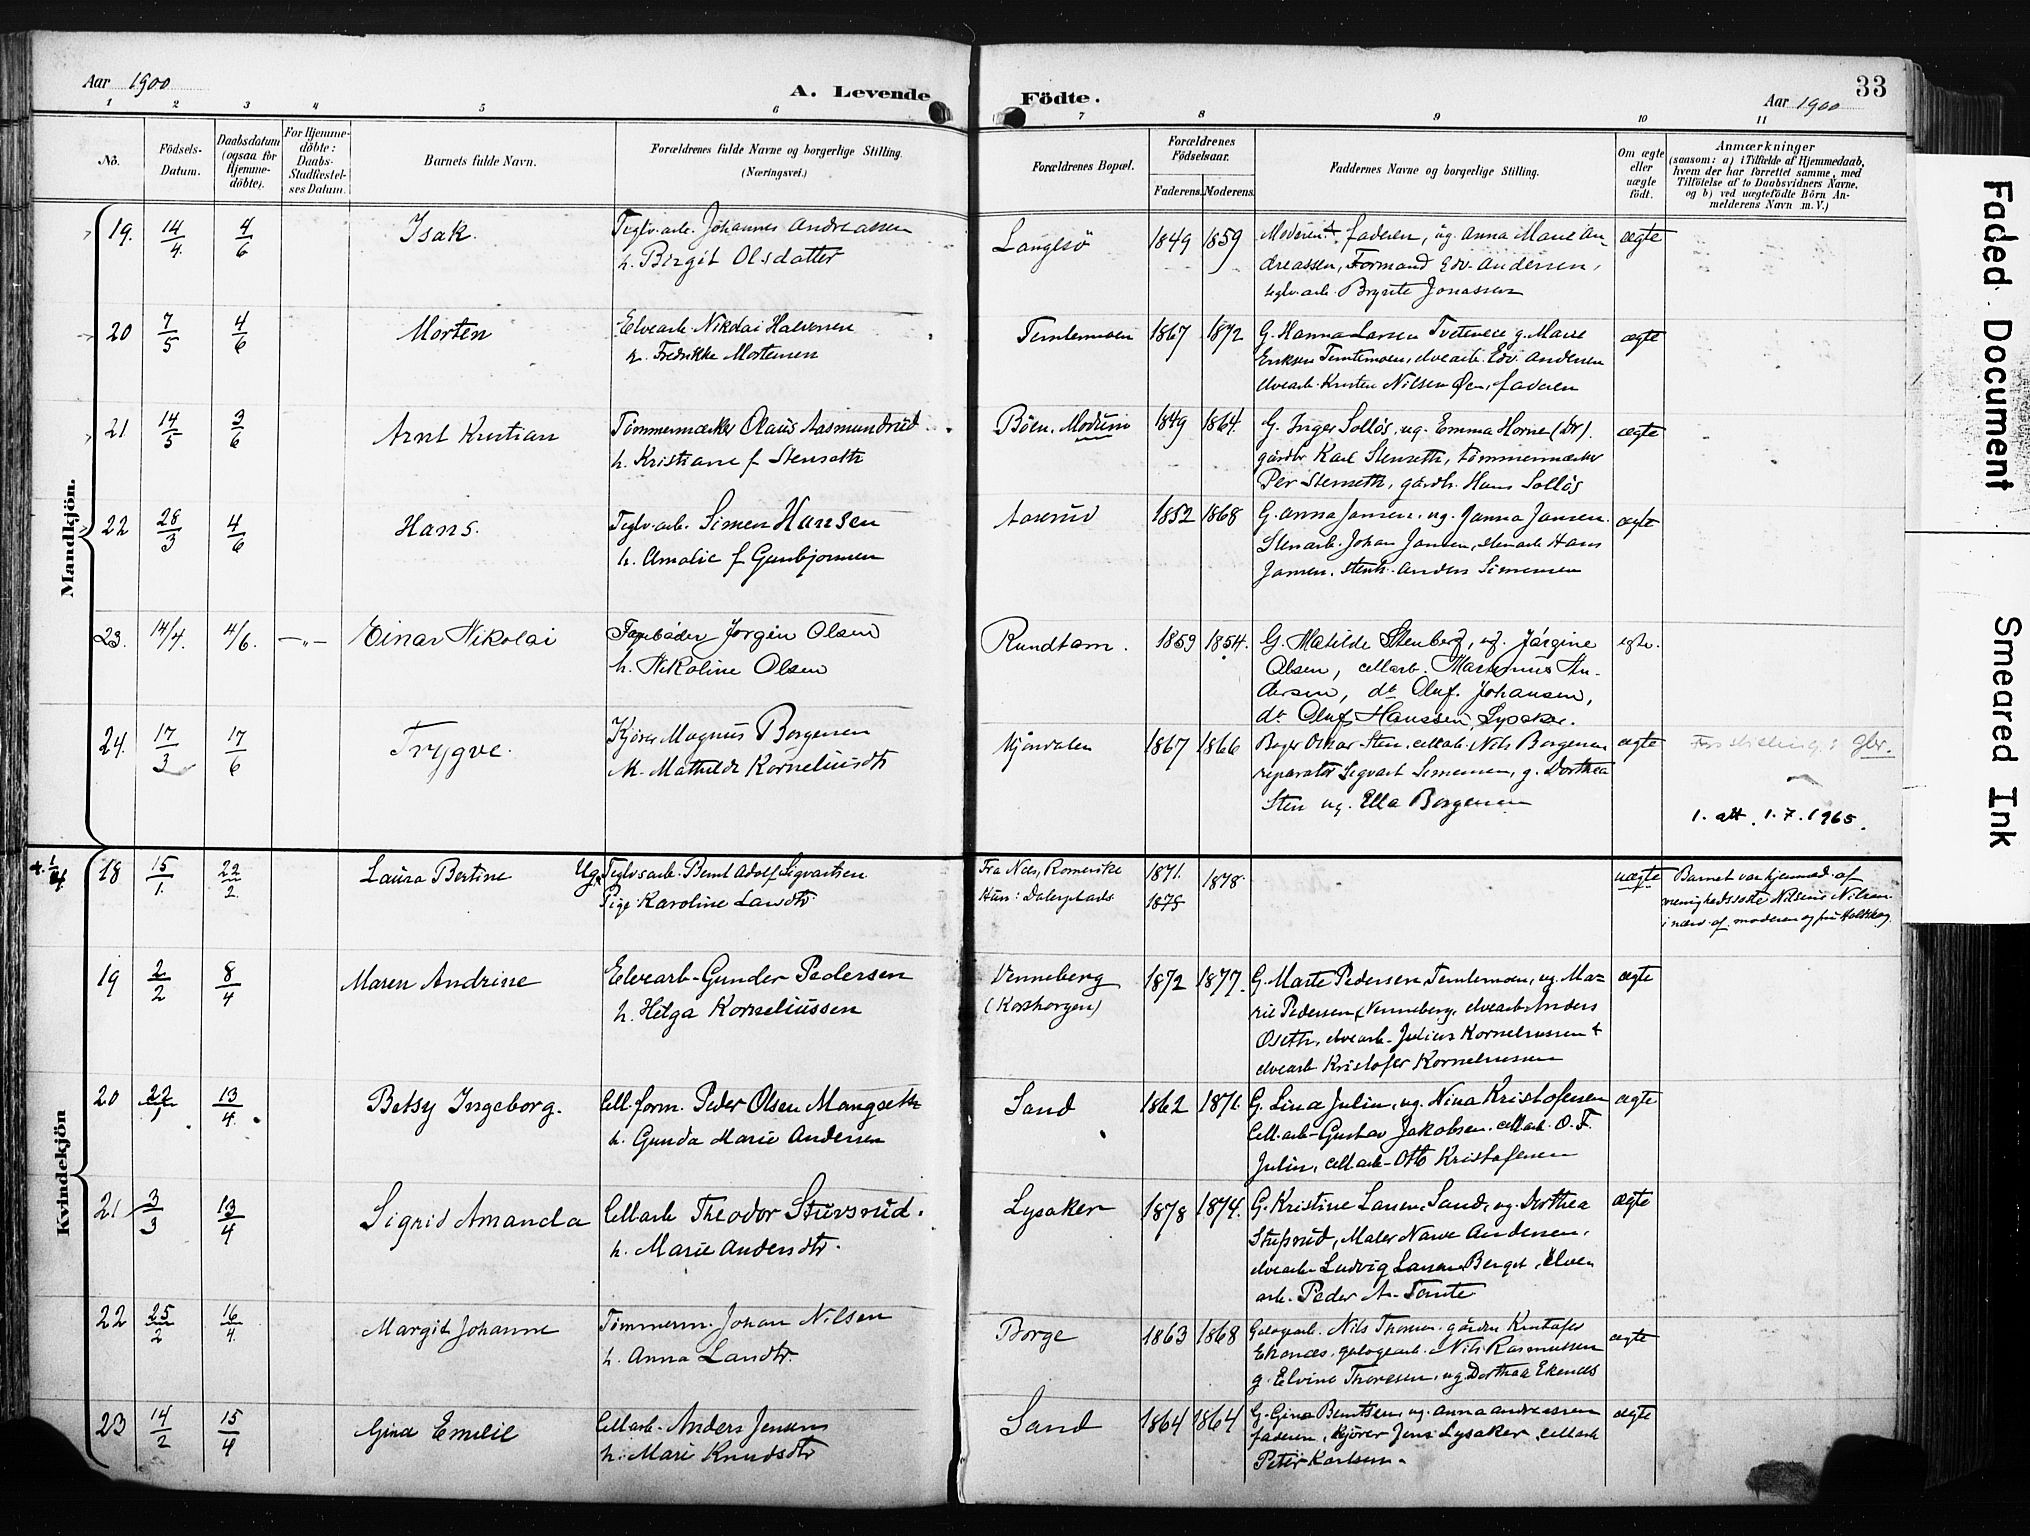 Aar 1900
A. Levende
Födte.
33
Aar 1900
1 2 3 4 5 6 7 8 9 10 11
No.
Födsels-
Datum.
Daabsdatum
(ogsaa for
Hjemme-
döbte).
For Hjemme-
döbte:
Daabs-
Stadfæstel-
ses Datum.
Barnets fulde Navn.
Forældrenes fulde Navne og borgerlige Stilling.
(Næringsvei.)
Forældrenes Bopæl.
Forældrenes
Födselsaar.
Faderens. Moderens.
Faddernes Navne og borgerlige Stilling.
Om ægte
eller
uægte
födt.
Anmærkninger
(saasom: a) i Tilfælde af Hjemmedaab,
hvem der har forrettet samme, med
Tilföielse af to Daabsvidners Navne,
og b) ved uægtefödte Börn An-
melderens Navn m. V.)
Mandkjön.
19. 14/4 4/6 Isak. Teglv.arb. Johannes Andreassen
h. Birgit Olsdatter
Langesö 1849 1859 Moderen + faderen, ug. Anna Marie An-
dreassen, Formand Edv. Andersen,
teglv.arb. Jonassen
ægte
20 7/5 4/6 Morten Elvearb Nikolai Halvorsen
h. Fredrikke Mortensen
Temtemoen 1867 1872 G. Hanna Larsen g. Marie
Eriksen Temtemoen, elvearb. Edv. Andersen
elvearb. Kristen Nilsen Øen, faderen
ægte
21 14/5 3/6 Arnt Kristian Tömmermærker Olaus Aasmundrud
h. Kristiane f Stenseth
Böen, Modum 1849 1864 G. Inger Solløs, ug. Emma Horne (Dr).
gårdbr Karl Stenseth, tömmermærker
Per Stenseth, gårdb. Hans Solløs
ægte
22 28/3 4/6 Hans. Teglv.arb. Simen Hansen
h. Amalie f Gunbjørnsen
Aaserud 1852 1868 G. Anna Jansen, ug. Janna Jansen
Stenarb. Johan Jansen, stenarb Hans
Jansen, stenh. Anders Simensen
ægte
23. 14/4. 4/6. —"— Einar Nikolai Jørgen Olsen
h. Nikoline Olsen
Rundtom. 1859 1854. G. Matilde Stenberg, ug. Jørgine
Olsen, cellarb. Martinius An-
dersen, do Oluf Johansen,
do Oluf Hanssen, Lysaker.
egte.
24. 17/3 17/6 Trygve. Kjører Magnus Borgersen
h. Mathilde Korneliusdtr
Mjøndalen 1867 1866 Bager Oskar Sten, cellarb. Nils Borgersen
reparatør Sigvart Simensen, g. Dorthea
Sten ug. Ella Borgersen
ægte
1. att. 1.7.1965.
Kvindekjön
18 15/1. 22/2 Laura Bertine Ug. Teglv.arb. Bernt Adolf Sigvartsen
Pige Karoline Larsdtr
Fra Nes, Romerike
Hun: Dalerplads
1871. 1875 1878. uægte
Barnet var hjemmed. af
menighedssøster Nilsine Nilsen
i nærv. af moderen og fru Holtskog.
19 2/2 8/4 Maren Andrine Elvearb. Gunder Pedersen
h. Helga Korneliussen
Venneberg
(Korshorgen)
1872 1877. G. Marte Pedersen Temtemoen, ug. Ma-
rie Pedersen, Venneberg, elvearb Anders
Oseth, elvearb. Julius Korneliussen +
elvearb Kristofer Korneliussen
ægte
20 22/1 13/4 Betsy Ingeborg. Cell.form. Peder Olsen Mangseth
h. Gunda Marie Andersen
Sand 1862 1871. G. Lina Julin, ug. Nina Kristofersen
Cell.arb. Gustav Jakobsen, cellarb. O. F.
Julin, cellarb. Otto Kristofersen
ægte
21 3/3 13/4 Sigrid Amanda Cellarb Theodor Stuvsrud.
h. Marie Andersdtr.
Lysaker 1878 1874. G. Kristine Larsen, Sand, ug. Dorthea
Stupsrud, Maler Narve Andersen,
elvearb Ludvig Larsen Berget, elve-
arb. Peder A. Tomte
ægte
22 25/2 16/4 Margit Johanne Tömmerm. Johan Nilsen
h. Anna Larsdtr.
Borge 1863 1868 Galogearb. Nils Thoresen, gårdbr Kristofer
Ekenæs, galogearb. Nils Rasmussen
g. Elvine Thoresen, ug Dorthea Ekenæs
ægte
23 14/2 15/4 Gina Emilie Cellarb. Anders Jensen
h. Mari Knudsdtr
Sand 1864 1864 G. Gina Berntsen, ug. Anna Andreassen
faderen, kjører Jens Lysaker, cellarb
Peter Karlsen.
ægte
Faded Document
Smeared Ink